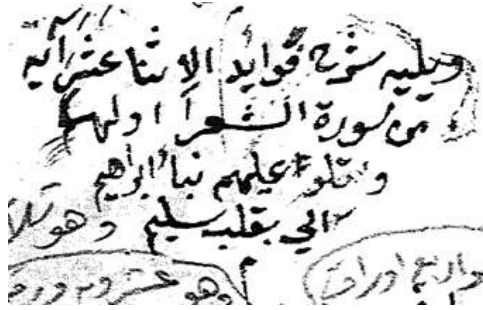 ويليه شرح فوايد الاثنا عشر آيه
من سورة الشعرا اولها
واتلو عليهم نبا ابراهيم
الي بقلب سليم
وهو ثلا
واربع اوراق
وهو عشرون ورق